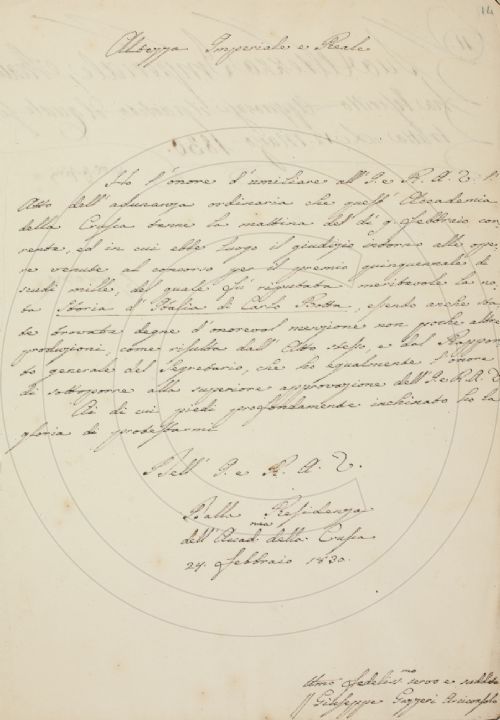 14
Altezza Imperiale e Reale
Ho l'onore d'umiliare all'I. e R. A. V. l'
Atto dell'adunanza ordinaria che quest'Accademia
della Crusca tenne la mattina del dì 9. febbraio cor,
rente, ed in cui ebbe luogo il giudizio intorno alle ope,
re venute al concorso per il premio quinquennale di
scudi mille, del quale fu reputata meritevole la no,
ta Storia d'Italia di Carlo Botta, essendo anche sta,
te trovate degne d'onorevol menzione non poche altre
produzioni, come risulta dall'Atto stesso, e dal Rappor,
to generale del Segretario, che ho egualmente l'onore
di sottoporre alla superiore approvazione dell'I. e R. A. V.
Ai di cui piedi profondamente inchinato ho la
gloria di protestarmi
Dell' I. e R. A. V.
Dalla Residenza
dell'Accad.mia della Crusca
24. febbraio 1830.
Umo fedelis.mo servo e suddito
Giuseppe Gazzeri Arciconsolo